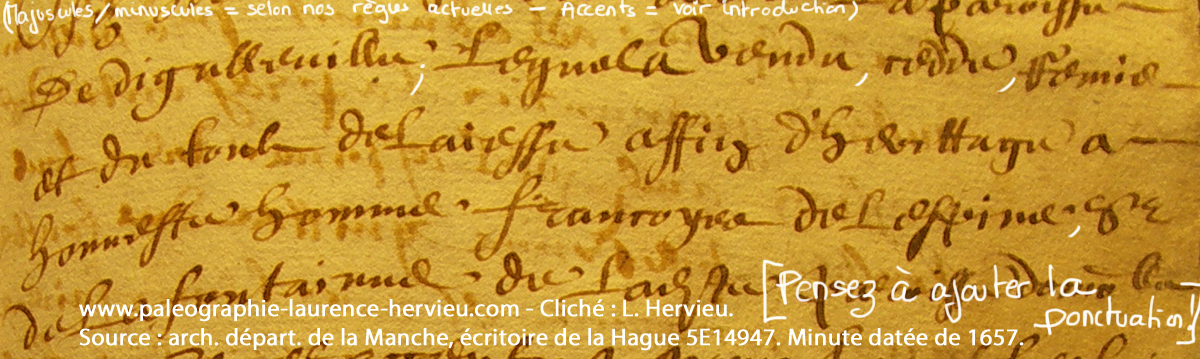 (Majuscules/minuscules = selon nos règles actuelles - Accents = voir introduction)
paroisse
de digulleville ; lequel a vendu, ceddé, fermie
et du tout delaiessé affin d'herittage a
honneste homme francoyse de Lespine, sr
de la fontainne de ladite paroisse
[Pensez à ajouter la
ponctuation]
www.paleographie-laurence-hervieu.com - Cliché : L. Hervieu.
Source : arch. départ. de la Manche, écritoire de la Hague 5E14947. Minute datée de 1657.